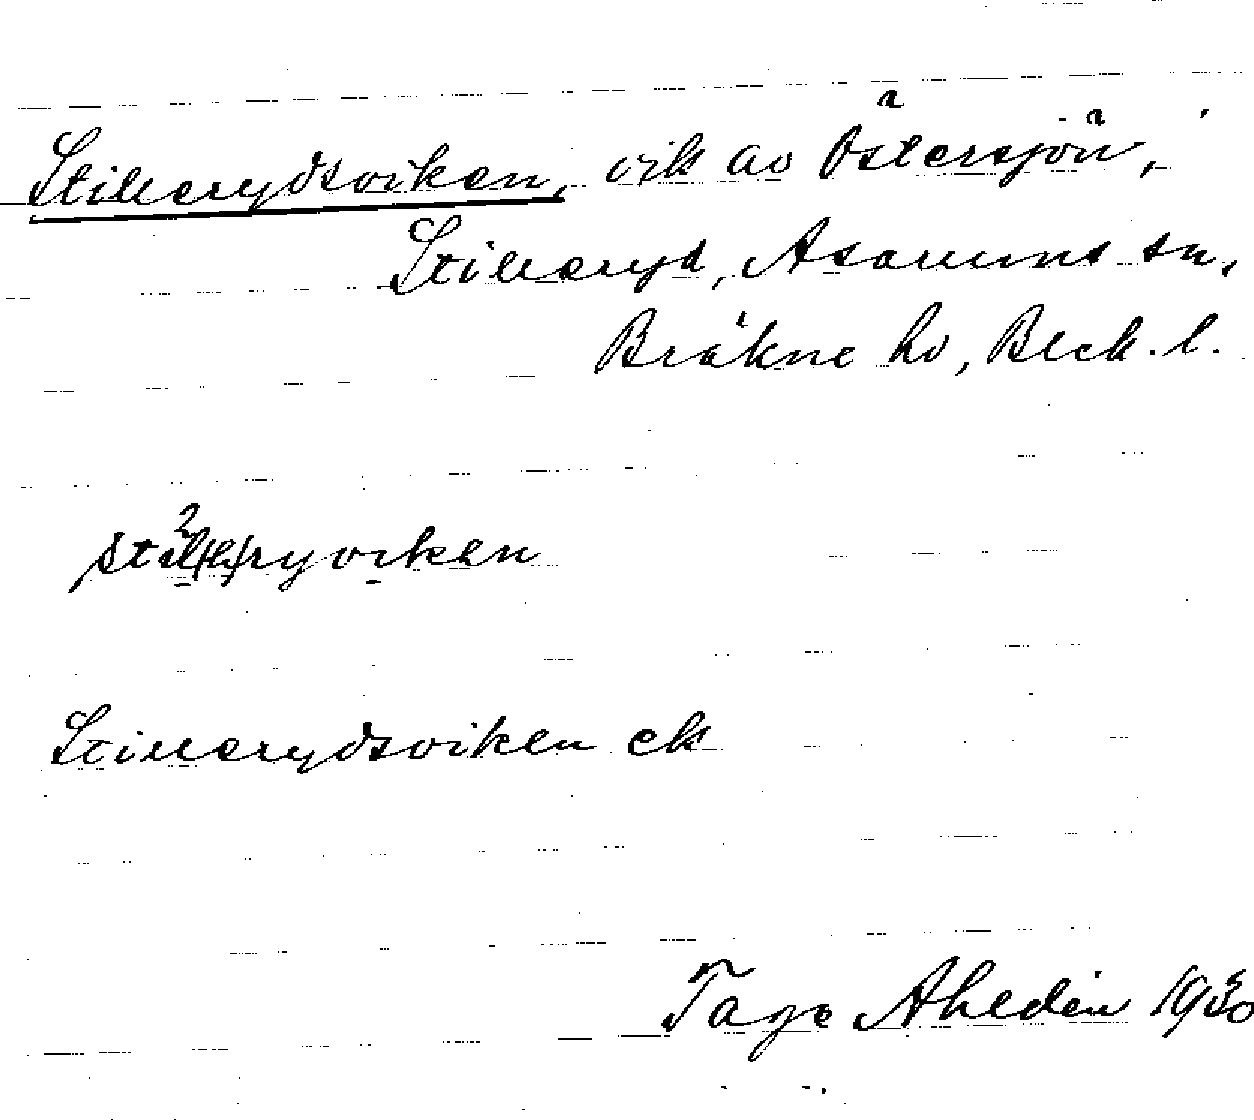 Stillerydsviken, vik av Östersjön,
Stilleryd, Asarums sn,
Bräkne hd, Blek. l.
Stillerydsviken ek
Tage Ahldén 1930